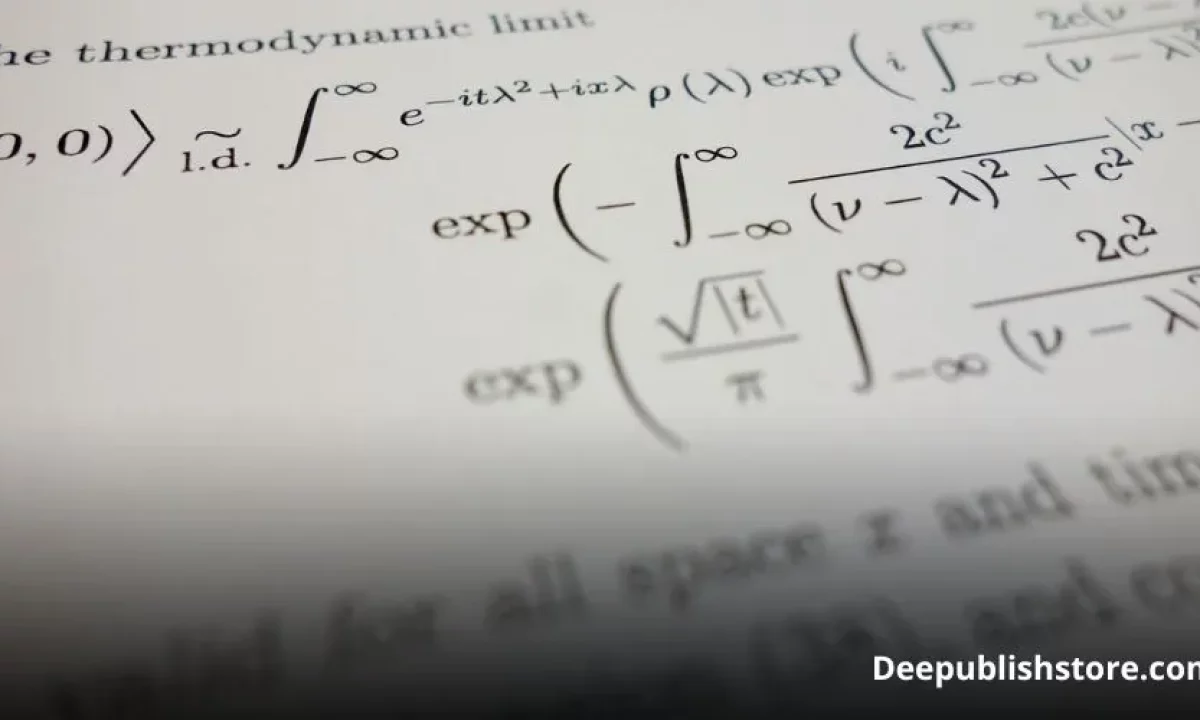 he thermodynamic limit
0, 0)⟩ ~ l.d. ∫_{-∞}^{∞} e^{-itλ²+ixλ} ρ(λ) exp ( i ∫_{-∞}^{∞} 2c(ν − / (ν − λ)²
exp ( − ∫_{-∞}^{∞} 2c² / (ν − λ)² + c² |x −
exp ( √|t| / π ∫_{-∞}^{∞} 2c² / (ν − λ)²
for all space x and tim
and co
Deepublishstore.com